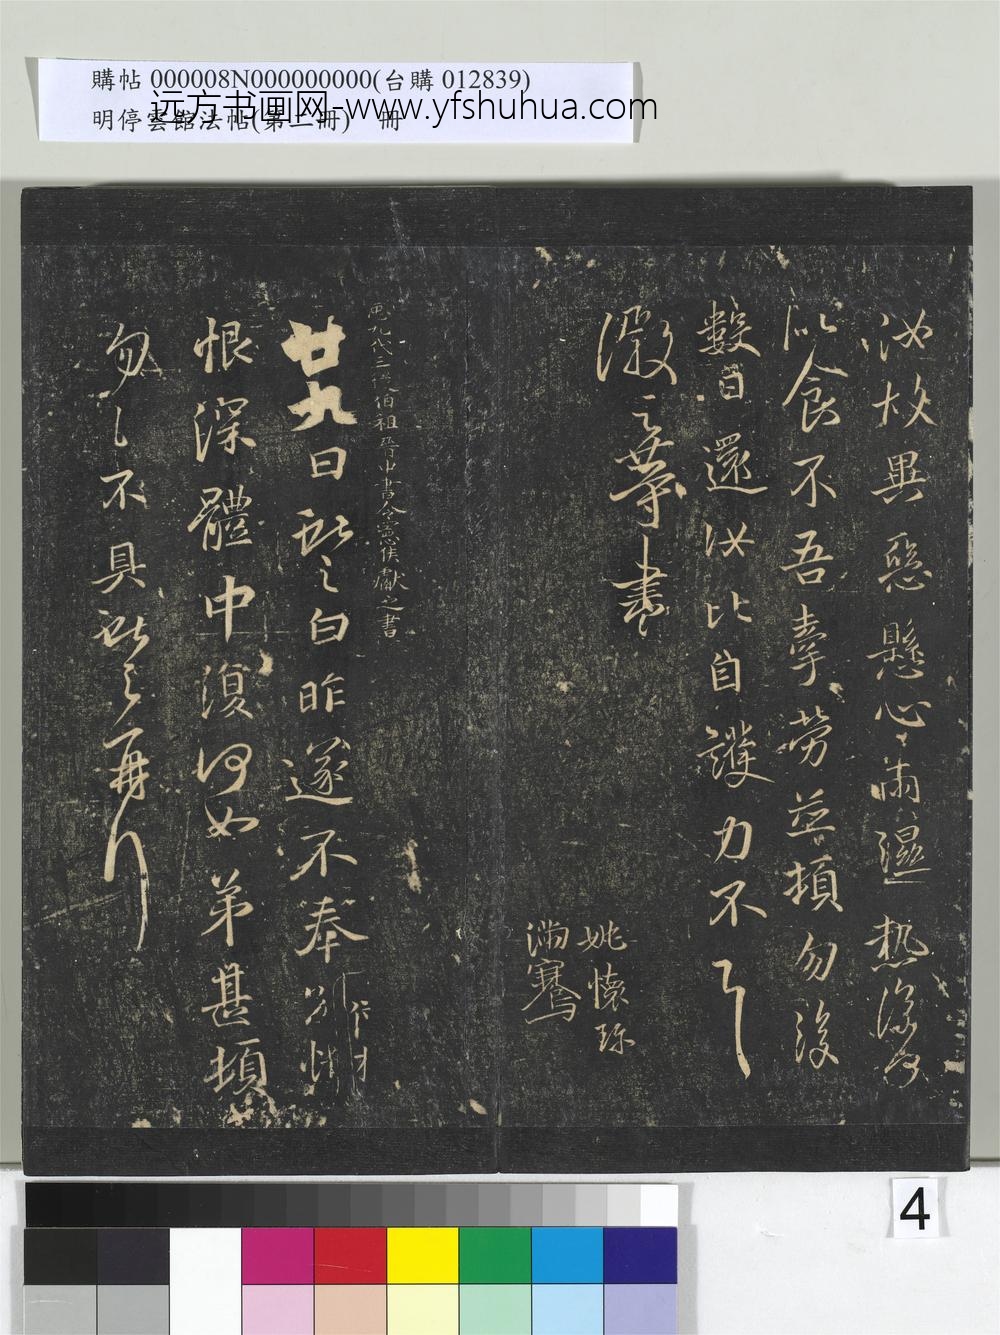 購帖 000008N000000000(台購 012839)
远方书画网-www.yfshuhua.com
明停雲館法帖(第二冊) 冊
汝故異惡懸心雨濕熱復何
似食不吾牽勞並頓勿復
數日還汝比自護力不
徽之等書
姚懷珍
滿騫
九代三從伯祖晉中書令憲侯獻之書
廿九日獻之白昨遂不奉別悵
恨深體中復何如弟甚頓
匆匆不具獻之再
4